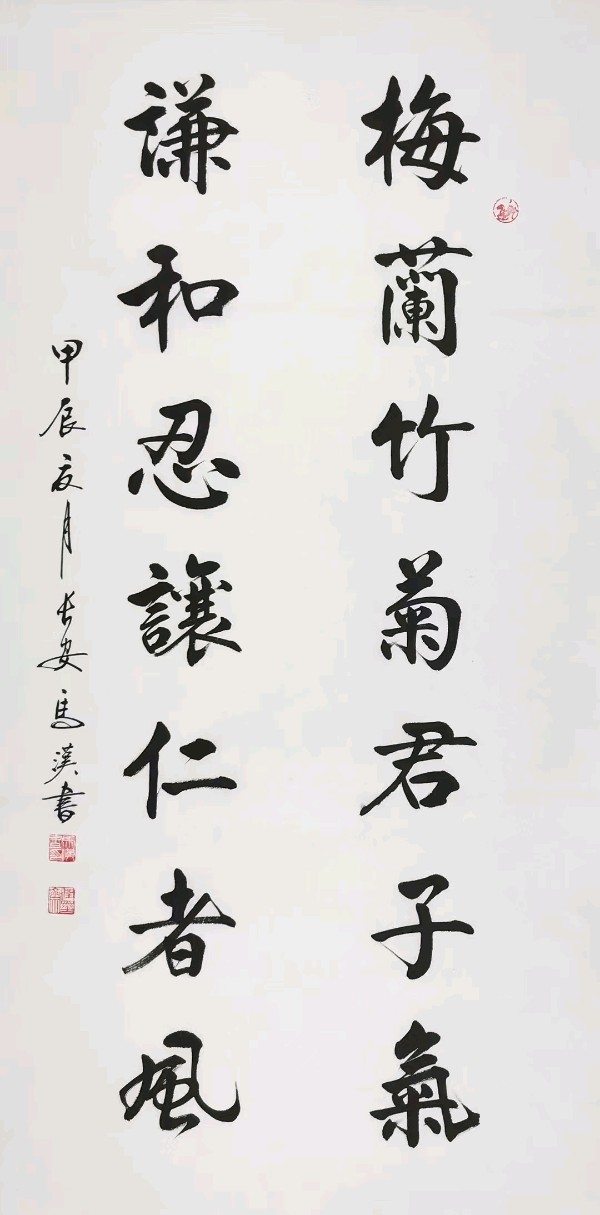 梅蘭竹菊君子氣
謙和忍讓仁者風
甲辰夏月長安馬漢書